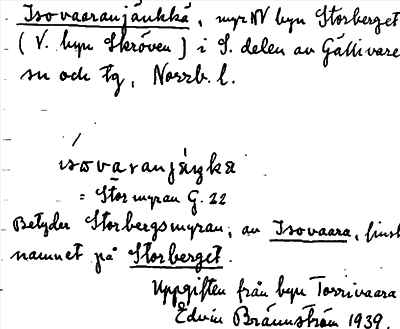 Isovaaranjänkkä, myr NV byn Storberget
(V. byn Skröven) i S. delen av Gällivare
sn och tg, Norrb. l.
isovāranjäŋkä
= Stormyran G. 22
Betyder Storbergsmyran; av Isovaara, finskt
namnet på Storberget.
Uppgiften från byn Torrivaara
Edvin Brännström 1939.